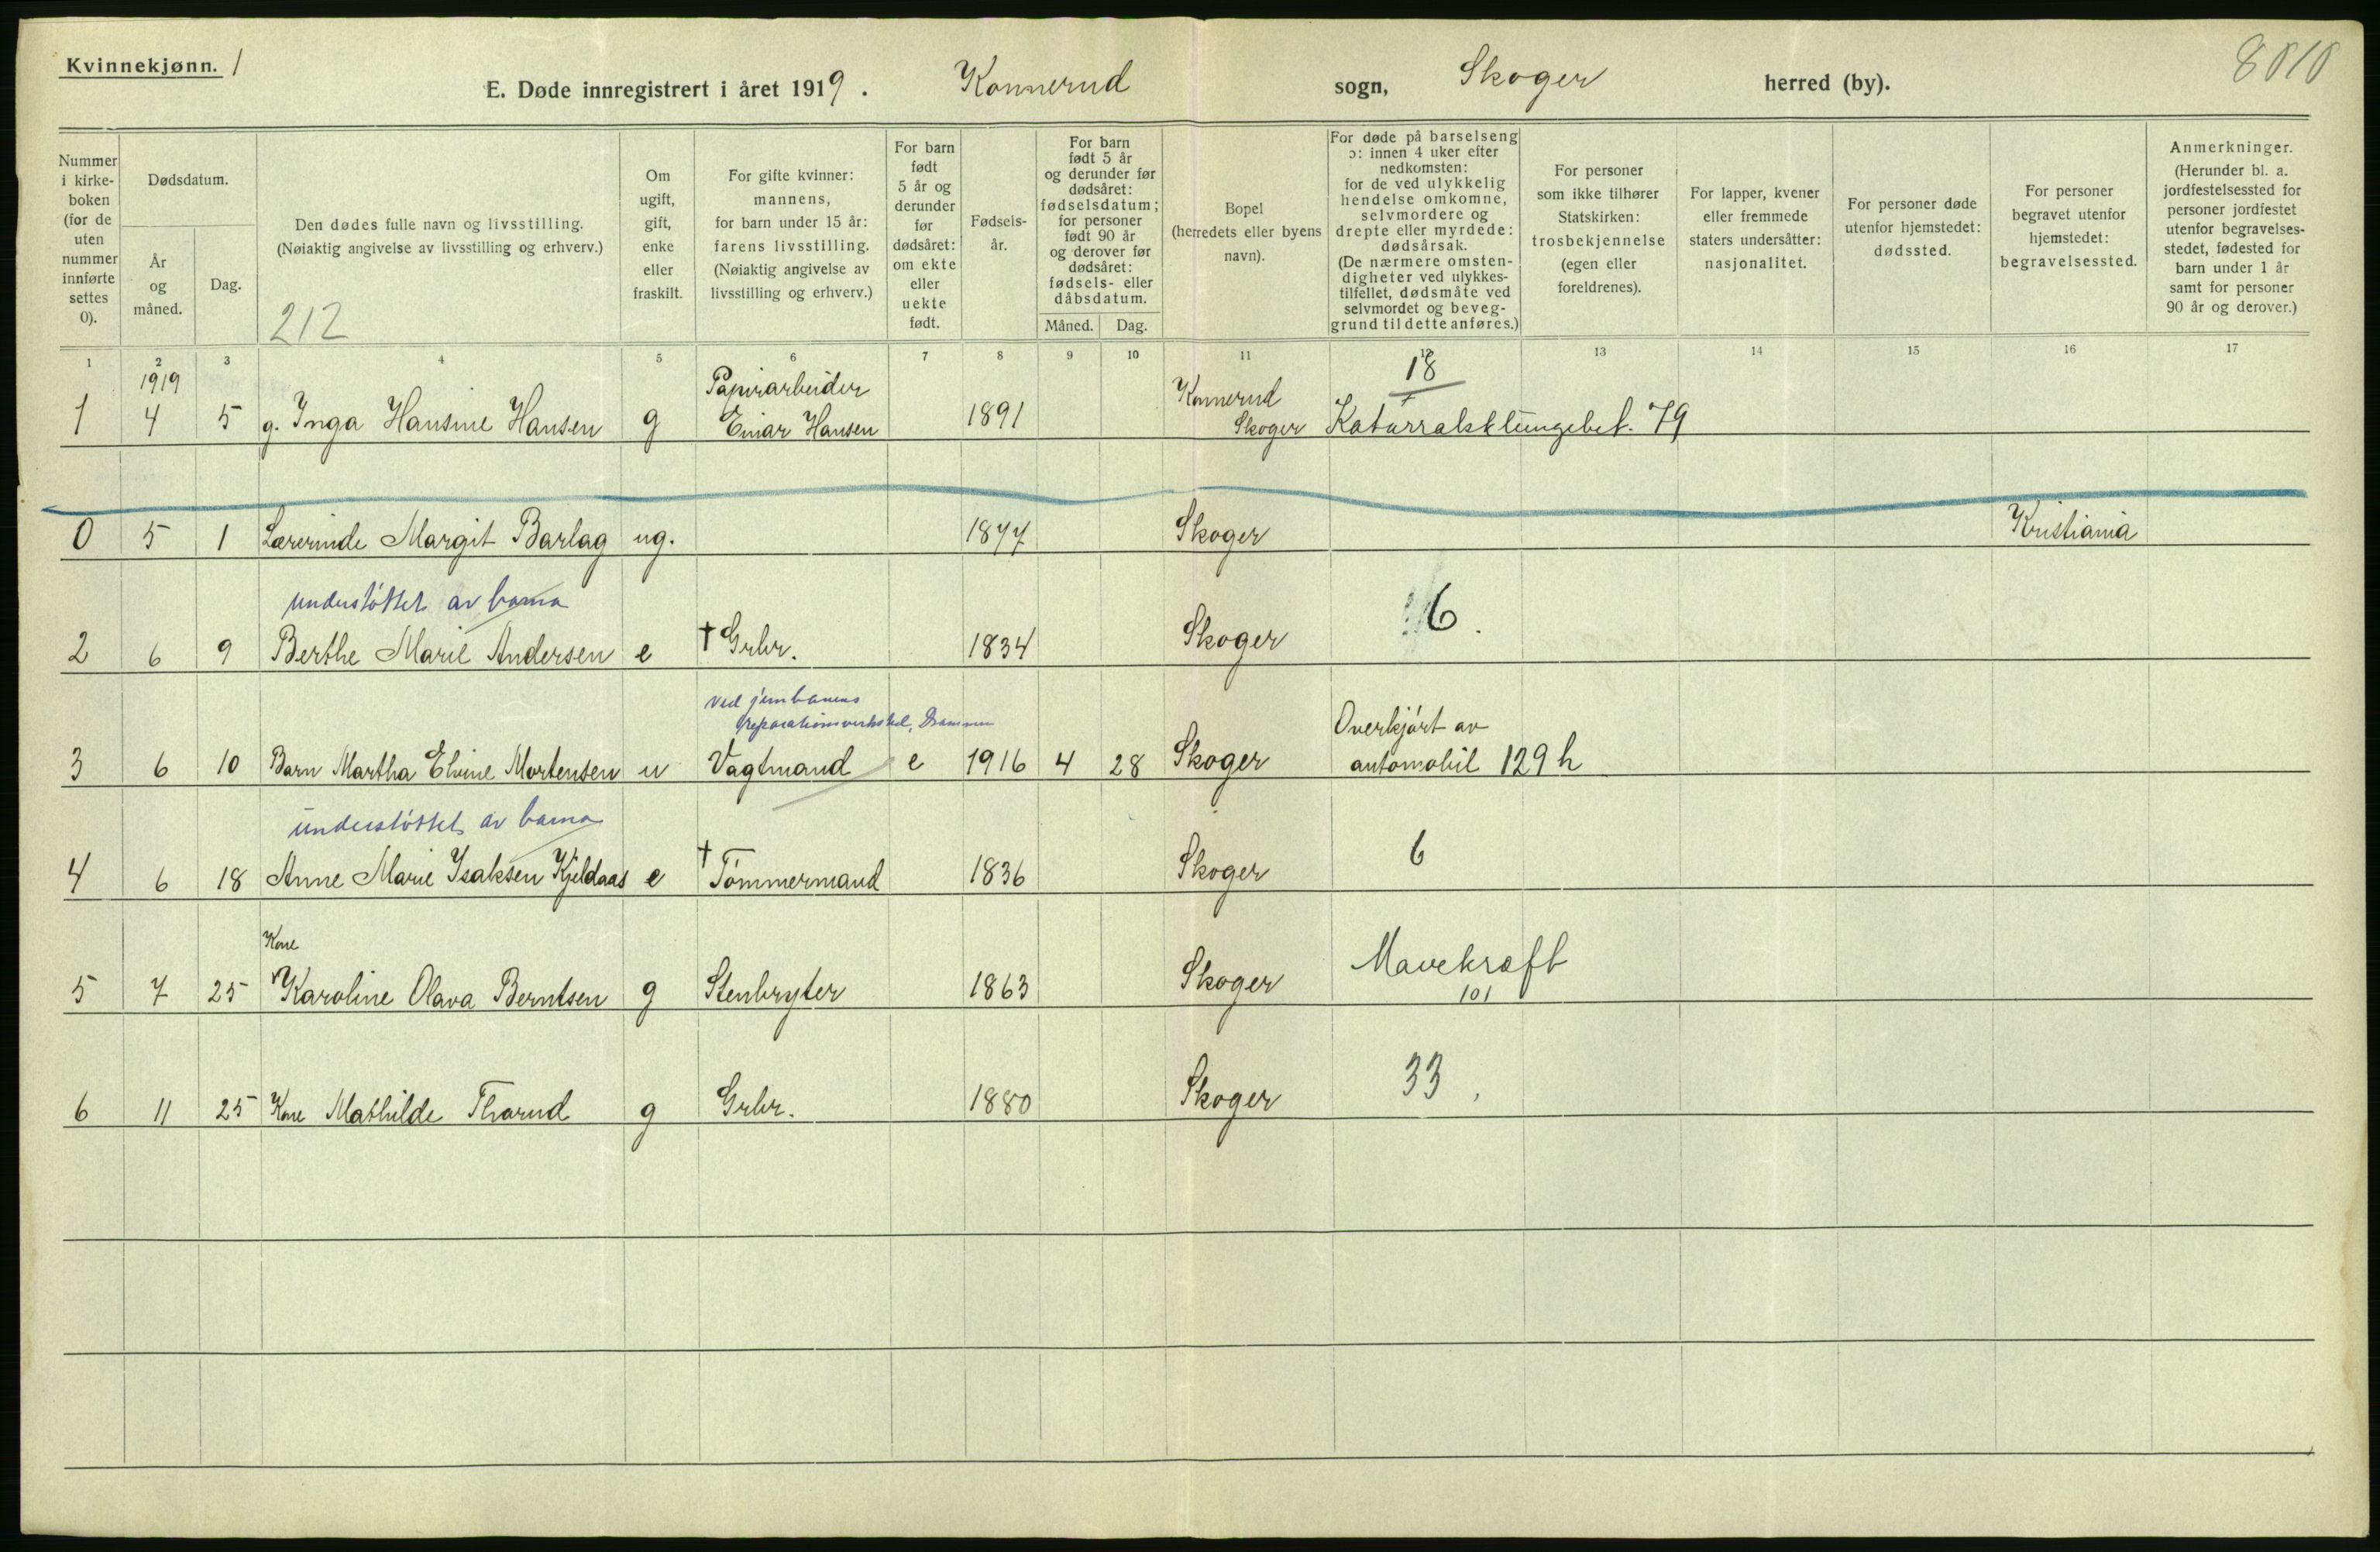 Kvinnekjønn. 1
E. Døde innregistrert i året 1919. Konnerud sogn, Skoger herred (by). 8010
Nummer i kirkeboken (for de uten nummer innførte settes 0).
Dødsdatum.
År og måned.
Dag.
Den dødes fulle navn og livsstilling.
(Nøiaktig angivelse av livsstilling og erhverv.)
212
Om ugift, gift, enke eller fraskilt.
For gifte kvinner: mannens, for barn under 15 år: farens livsstilling. (Nøiaktig angivelse av livsstilling og erhverv.)
For barn født 5 år og derunder før dødsåret: om ekte eller uekte født.
Fødsels-år.
For barn født 5 år og derunder før dødsåret: fødselsdatum; for personer født 90 år og derover før dødsåret: fødsels- eller dåbsdatum.
Måned. Dag.
Bopel (herredets eller byens navn).
For døde på barselseng ɔ: innen 4 uker efter nedkomsten: for de ved ulykkelig hendelse omkomne, selvmordere og drepte eller myrdede: dødsårsak. (De nærmere omstendigheter ved ulykkestilfellet, dødsmåte ved selvmordet og beveggrund til dette anføres.)
For personer som ikke tilhører Statskirken: trosbekjennelse (egen eller foreldrenes).
For lapper, kvener eller fremmede staters undersåtter: nasjonalitet.
For personer døde utenfor hjemstedet: dødssted.
For personer begravet utenfor hjemstedet: begravelsessted.
Anmerkninger. (Herunder bl. a. jordfestelsessted for personer jordfestet utenfor begravelsesstedet, fødested for barn under 1 år samt for personer 90 år og derover.)
1 2 3 4 5 6 7 8 9 10 11 12 13 14 15 16 17
1919 Papirarbeider Konnerud 18
1 4 5 g. Inga Hansine Hansen g Einar Hansen 1891 Skoger Katarralsklungebet. 79
0 5 1 Lærerinde Margit Barlag ug. 1877 Skoger Kristiania
understøttet av barna
2 6 9 Berthe Marie Andersen e † Grbr. 1834 Skoger 6.
ved jernbanens
reparationsverksted, Drammen
3 6 10 Barn Martha Elvine Mortensen u Vagtmand e 1916 4 28 Skoger Overkjørt av automobil 129 h
understøttet av barna
4 6 18 Anne Marie Isaksen Kjeldaas e † Tømmermand 1836 Skoger 6
Kone
5 7 25 Karoline Olava Berntsen g Stenbryter 1863 Skoger Mavekræft 101
6 11 25 Kone Mathilde Thorud g Grbr. 1880 Skoger 33